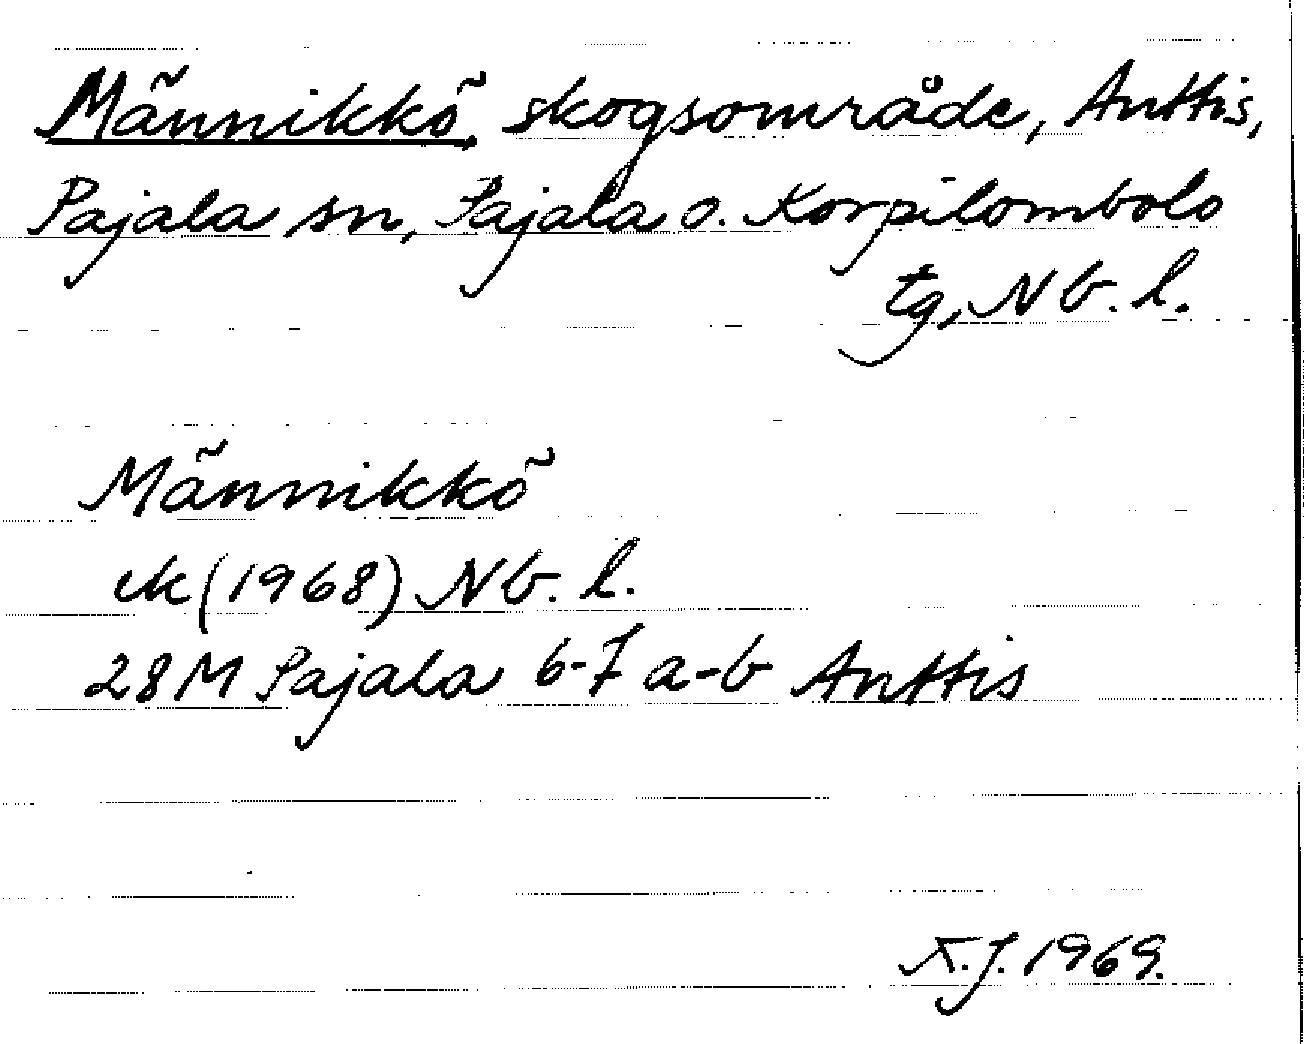 Männikkö, skogsområde, Anttis,
Pajala sn, Pajala o. Korpilombolo
tg, Nb. l.
Männikkö
ek (1968) Nb. l.
28M Pajala 6-7 a-b Anttis
K.J. 1969.